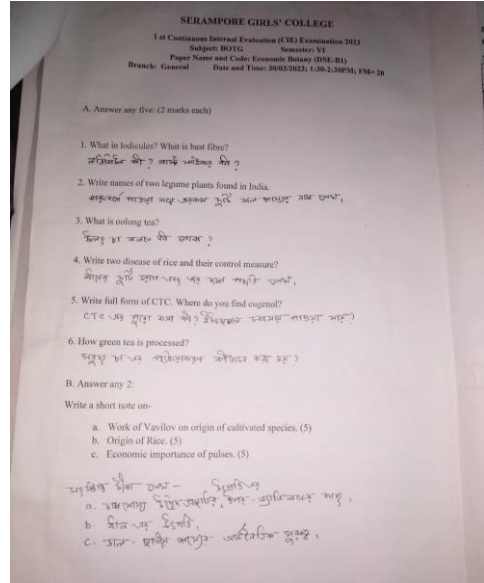 SERAMPORE GIRLS' COLLEGE
1 st Continuous Internal Evaluation (CIE) Examination 2023
Subject: BOTG Semester: VI
Paper Name and Code: Economic Botany (DSE-B1)
Branch: General Date and Time: 30/03/2023; 1:30-2:30PM; FM= 20
A. Answer any five: (2 marks each)
1. What in lodicules? What is bast fibre?
লডিকিউল কী? বাস্ট ফাইবার কী?
2. Write names of two legume plants found in India.
ভারতবর্ষে পাওয়া যায় এরকম দুটি ডাল শস্যের নাম লেখো,
3. What is oolong tea?
উলং চা বলতে কী বোঝ?
4. Write two disease of rice and their control measure?
ধানের দুটি রোগ এবং তার দমন পদ্ধতি লেখো,
5. Write full form of CTC. Where do you find eugenol?
CTC এর পুরো কথা কী? ইউজেনল কোথায় পাওয়া যায়?
6. How green tea is processed?
সবুজ চা এর প্রক্রিয়াকরণ কীভাবে করা হয়?
B. Answer any 2:
Write a short note on-
a. Work of Vavilov on origin of cultivated species. (5)
b. Origin of Rice. (5)
c. Economic importance of pulses. (5)
সংক্ষিপ্ত টীকা লেখো - উৎপত্তি এর
a. চাষযোগ্য উদ্ভিদ প্রজাতির উপর ভ্যাভিলভের কাজ,
b. ধান এর উৎপত্তি,
c. ডাল - শস্যের অর্থনৈতিক গুরুত্ব,